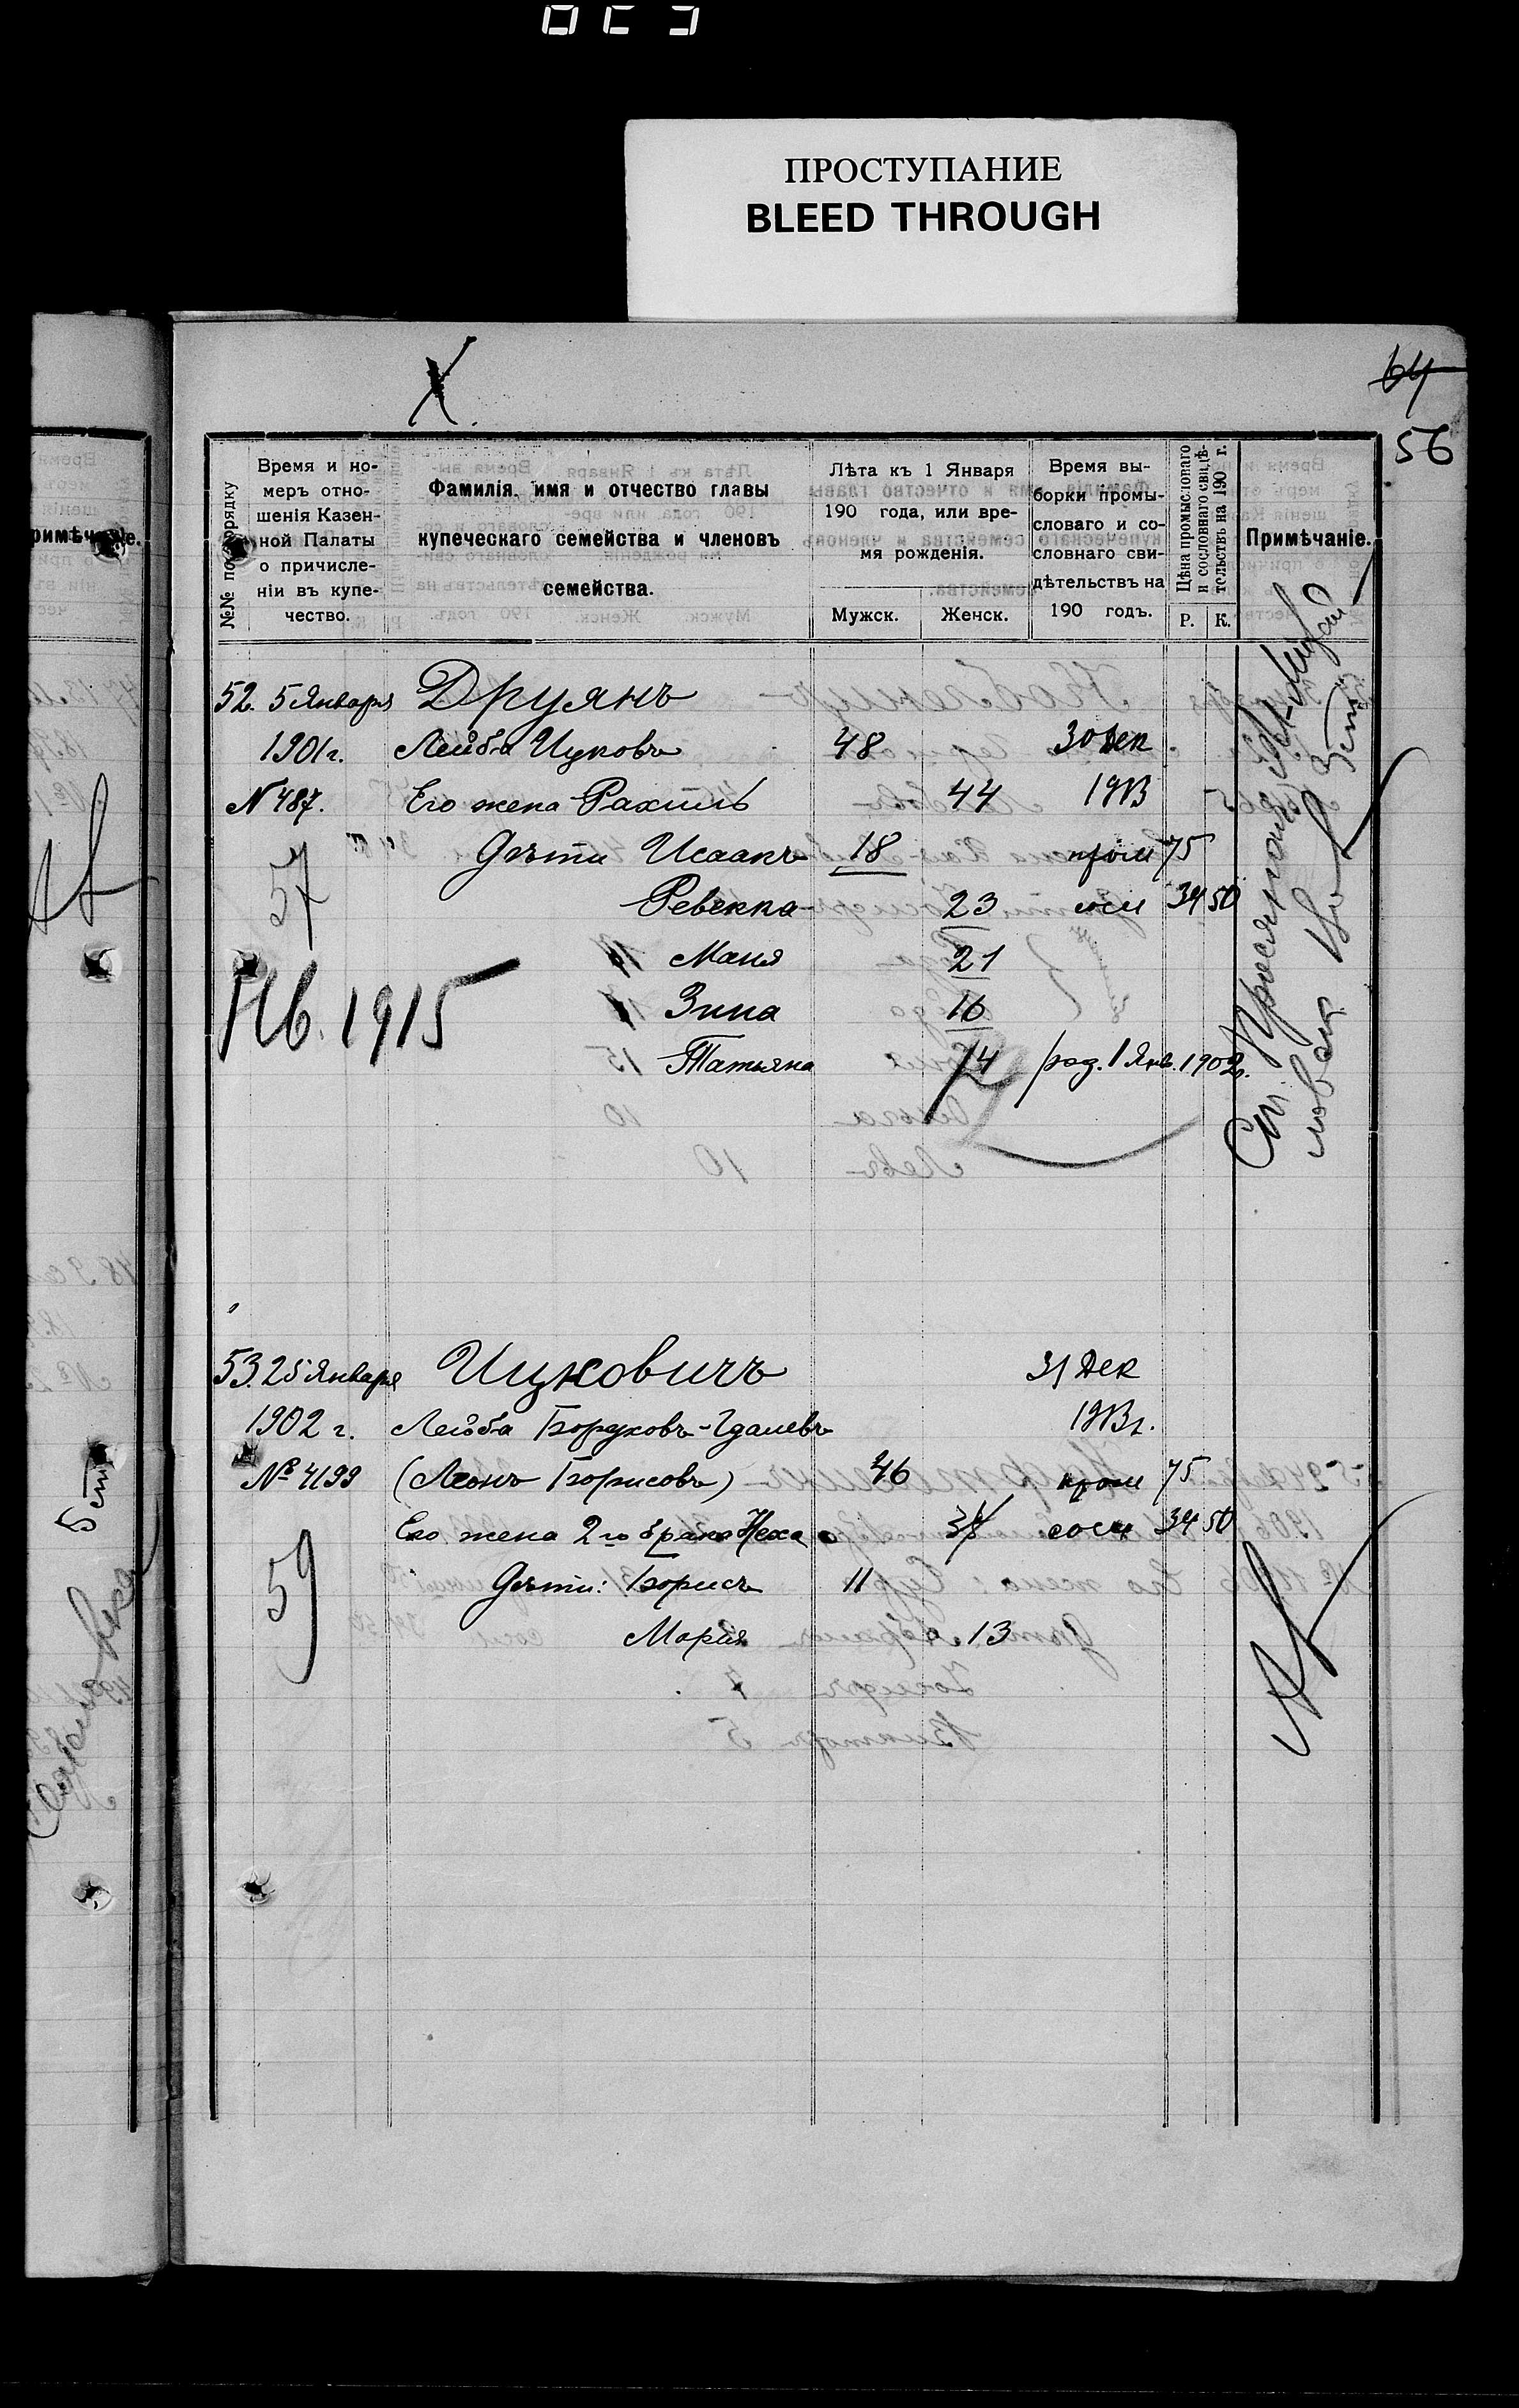 ПРОСТУПАНИЕ
BLEED THROUGH
X.
64
56
№№ по порядку
Время и но-
меръ отно-
шенія Казен-
ной Палаты
о причисле-
ніи въ купе-
чество.
Фамилія, имя и отчество главы
купеческаго семейства и членовъ
семейства.
Лѣта къ 1 Января
190 года, или вре-
мя рожденія.
Мужск. Женск.
Время вы-
борки промы-
словаго и со-
словнаго сви-
дѣтельствъ на
190 годъ.
Цѣна промысловаго
и сословнаго свидѣ-
тельствъ на 190 г.
Р. К.
Примѣчаніе.
52. 5 Января Друянъ
1901 г. Лейба Ицковъ 48 30 Дек
N 487. Его жена Рахиль 44
57 Дѣти Исаакъ 18 пром 75
Ревекка 23 сосл 34 50
Маня 21
1915 Зина 16
Татьяна 14 род. 1 Янв. 1902 г.
53. 25 Января Ицковичъ 31 Дек
1902 г. Лейба Боруховъ-Гдалевъ
№ 4199 (Леонъ Борисовъ) 46 пром 75
Его жена 2го брака Неха сосл 34 50
59 Дѣти: Борисъ 11
Марія 13